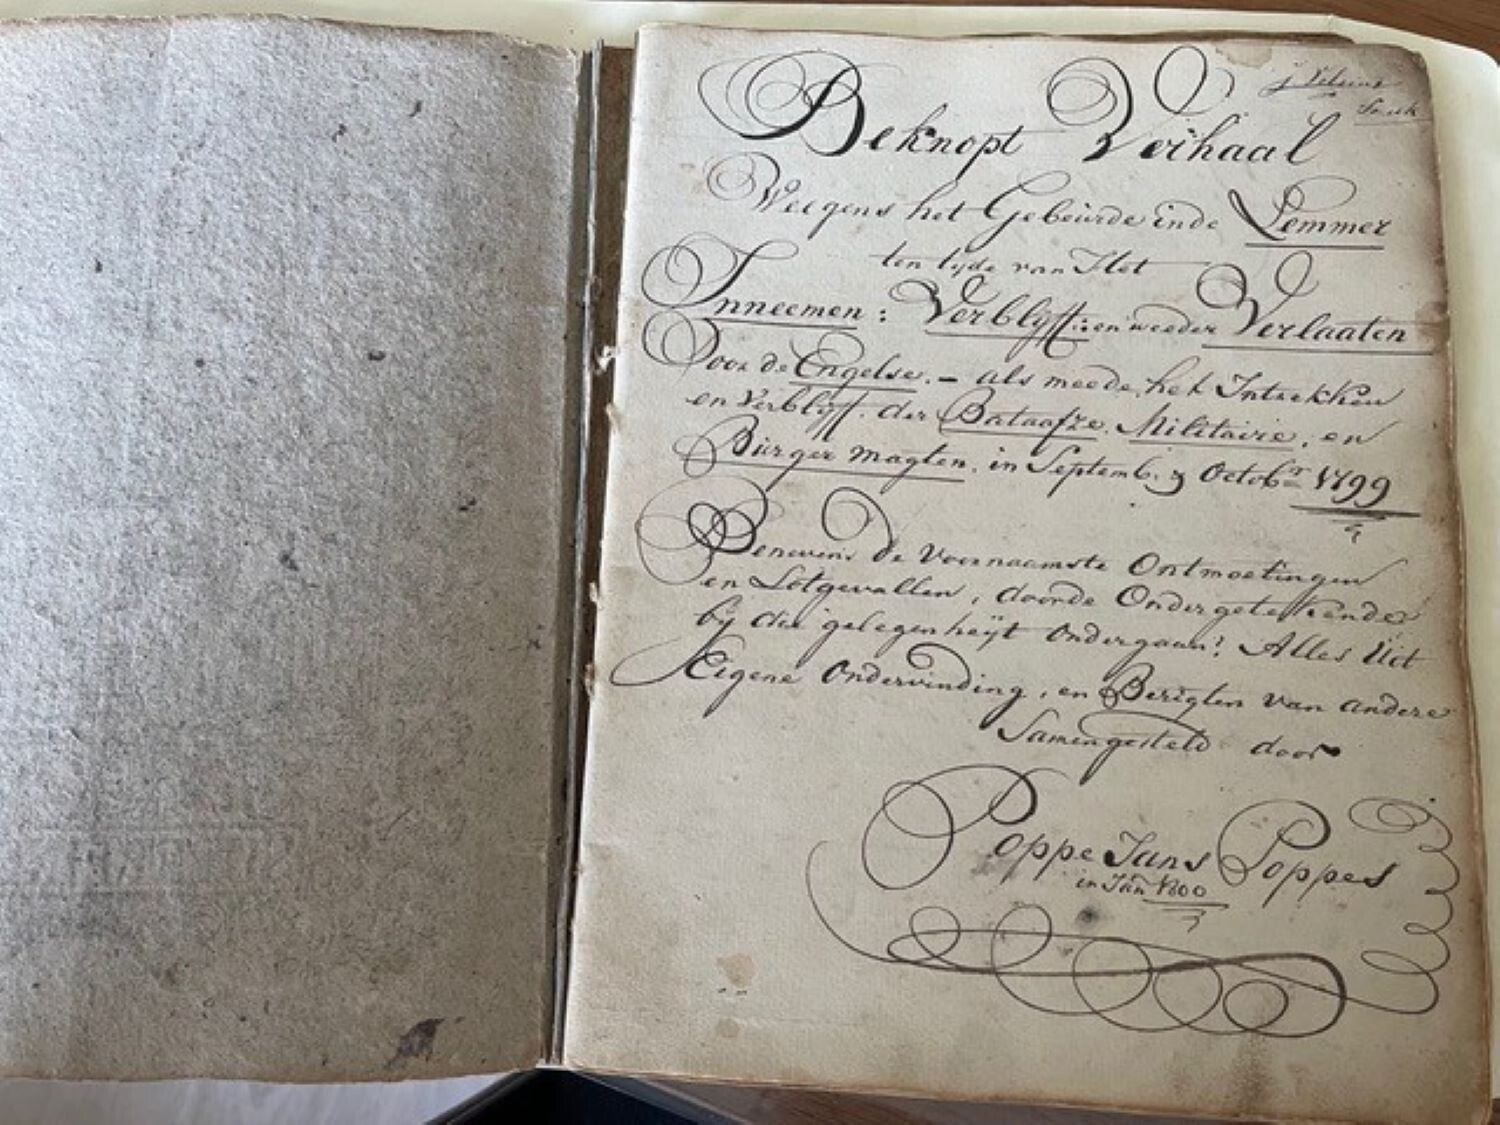 Beknopt Verhaal
Weegens het Gebeurde inde Lemmer
ten tyde van Het
Inneemen : Verblyff : en weeder Verlaaten
Door de Engelse. – als meede, het Intrekken
en Verblyff. der Bataafze, Militaire, en
Burger magten, in Septemb. & Octobr 1799
Benevens de Voornaamste Ontmoetingen
en Lotgevallen, doorde Ondergetekende
bij die gelegenheijt ondergaan: Alles Uit
Eigene Ondervinding, en Berigten van andere
Samengesteld door
Poppe Jans Poppes
in Jan 1800